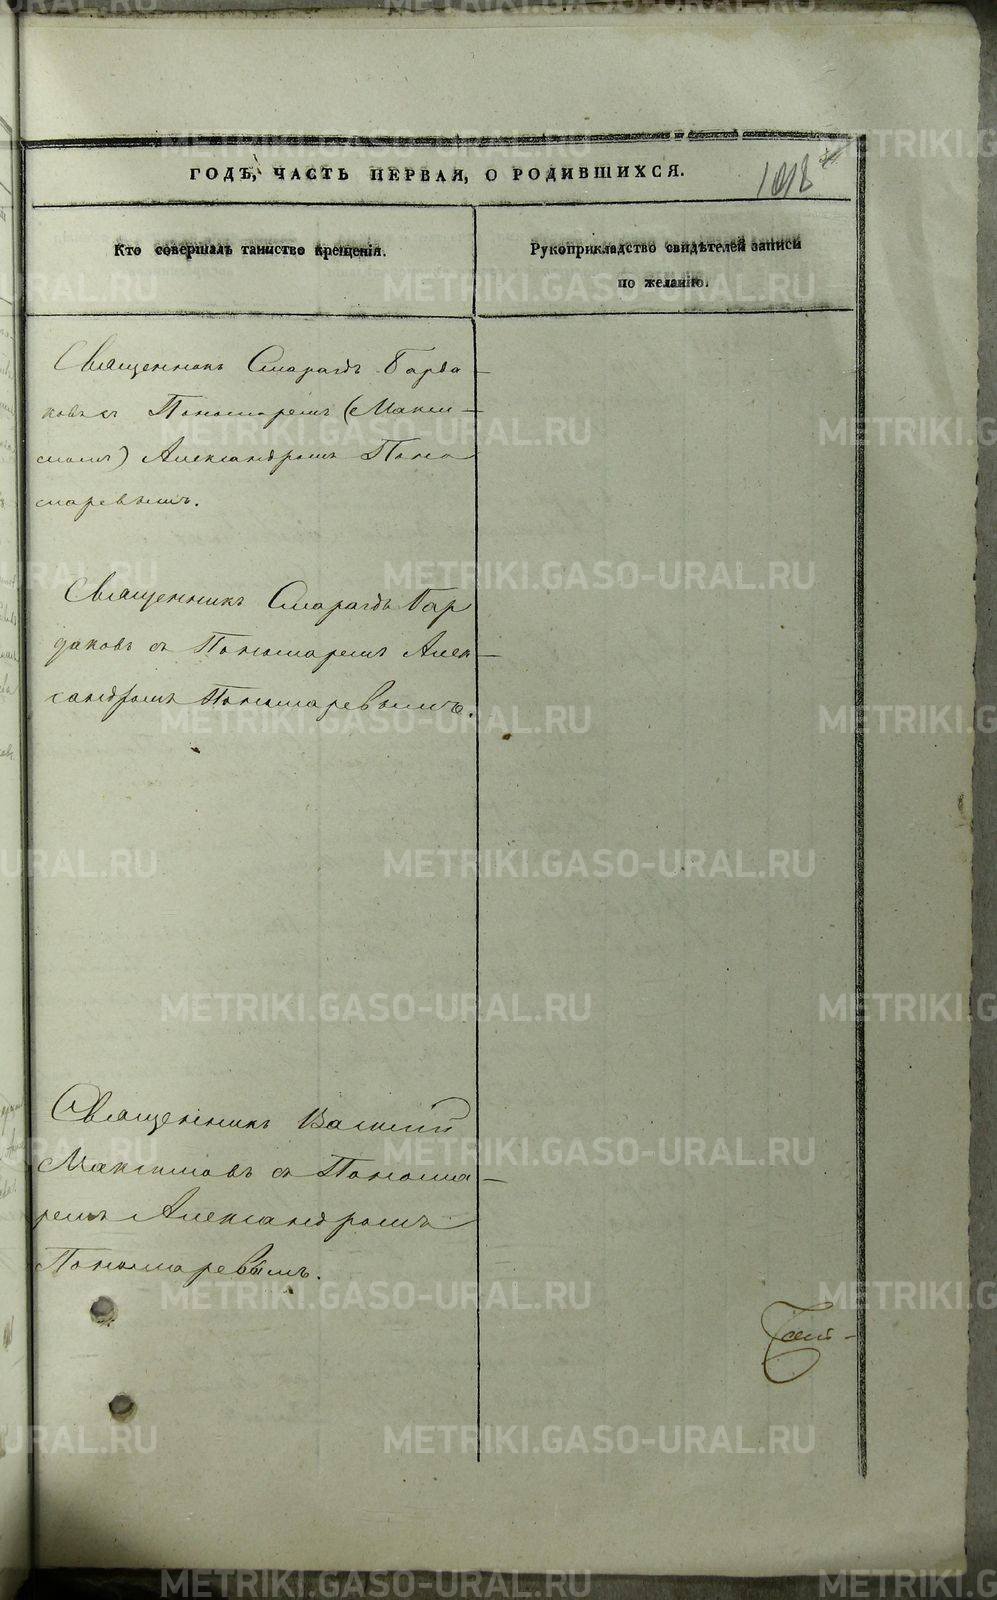 ГОДЪ, ЧАСТЬ ПЕРВАЯ, О РОДИВШИХСЯ.
Кто совершалъ таинство крещенія.
Рукоприкладство свидѣтелей записи
по желанію.
Священникъ Смарагдъ Барда-
ковъ съ Пономаремъ (Макси-
момъ) Александромъ Поно
маревымъ.
Священникъ Смарагдъ Бар
даковъ съ Пономаремъ Алек-
сандромъ Пономаревымъ.
Священникъ Василій
Максимовъ съ Понома-
ремъ Александромъ
Пономаревымъ.
METRIKI.GASO-URAL.RU